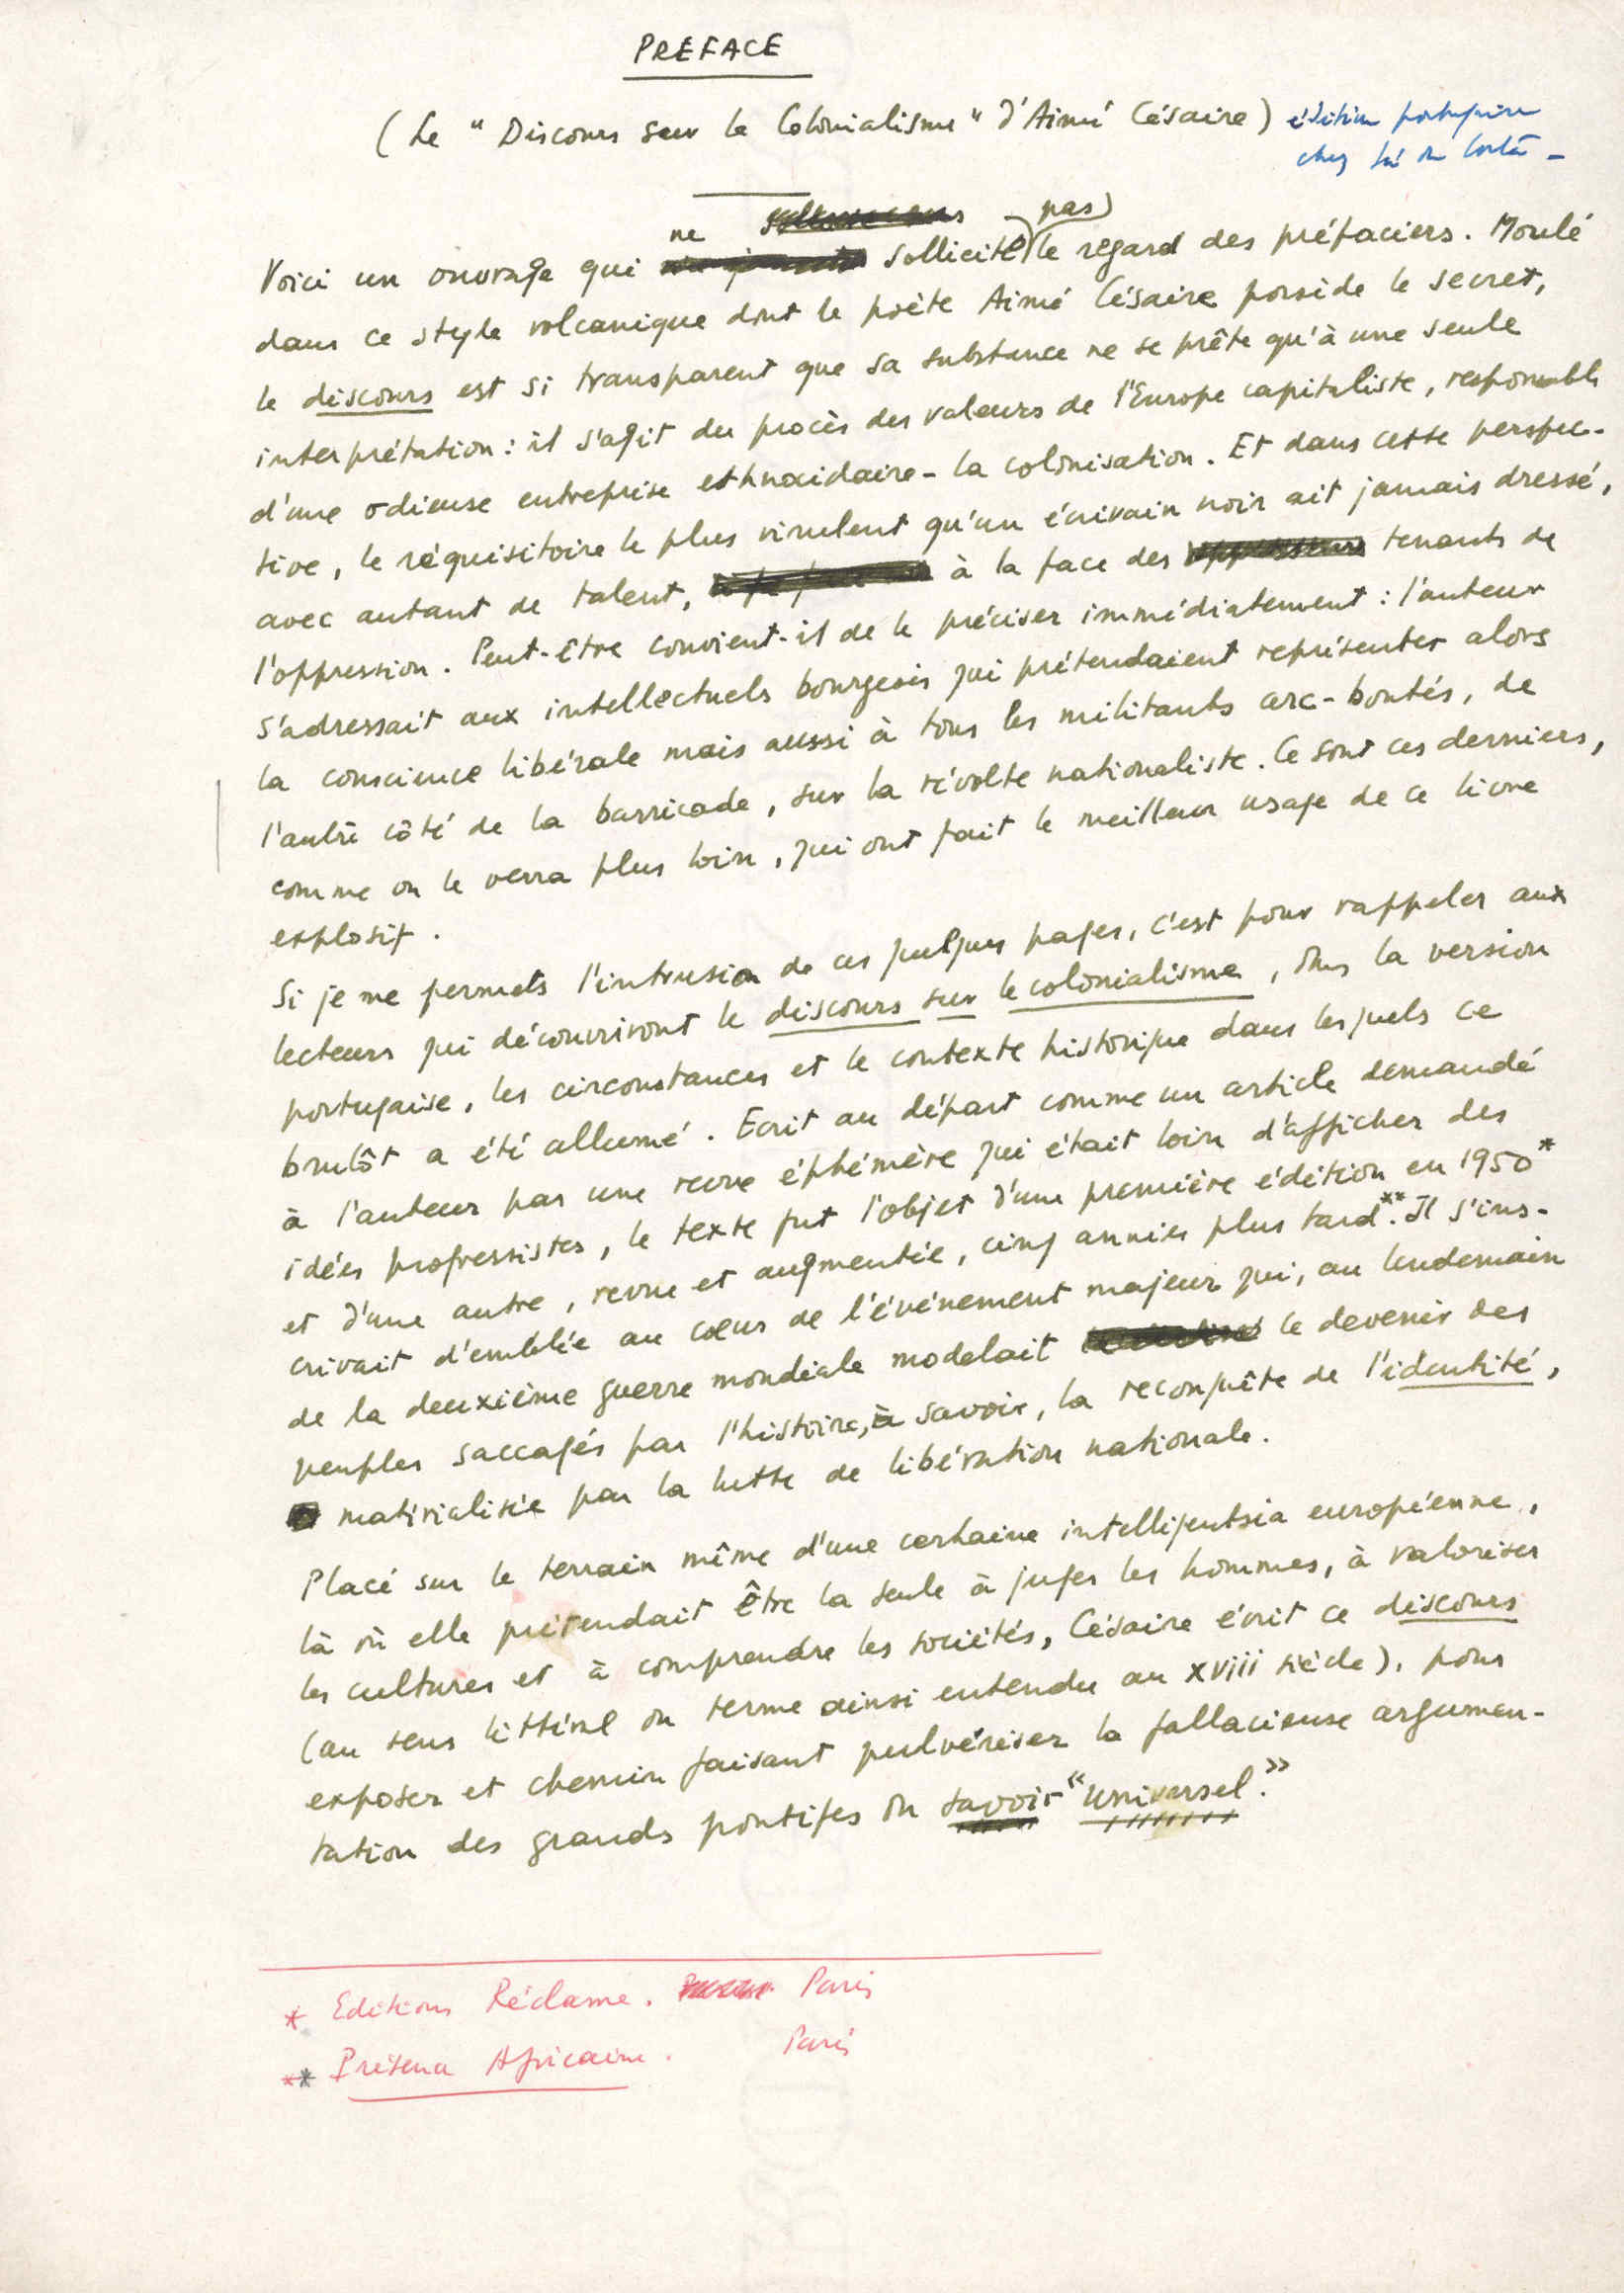 PREFACE
(Le "Discours sur le Colonialisme" d'Aimé Césaire) édition portugaise
chez Sá da Costa -
ne pas
Voici un ouvrage qui sollicite le regard des préfaciers. Moulé
dans ce style volcanique dont le poète Aimé Césaire possède le secret,
le discours est si transparent que sa substance ne se prête qu'à une seule
interprétation : il s'agit du procès des valeurs de l'Europe capitaliste, responsable
d'une odieuse entreprise ethnocidaire - la colonisation. Et dans cette perspec-
tive, le réquisitoire le plus virulent qu'un écrivain noir ait jamais dressé,
avec autant de talent, à la face des tenants de
l'oppression. Peut-être convient-il de le préciser immédiatement : l'auteur
s'adressait aux intellectuels bourgeois qui prétendaient représenter alors
la conscience libérale mais aussi à tous les militants arc-boutés, de
l'autre côté de la barricade, sur la révolte nationaliste. Ce sont ces derniers,
comme on le verra plus loin, qui ont fait le meilleur usage de ce livre
explosif.
Si je me permets l'intrusion de ces quelques pages, c'est pour rappeler aux
lecteurs qui découvriront le discours sur le colonialisme, dans la version
portugaise, les circonstances et le contexte historique dans lesquels ce
brulôt a été allumé. Ecrit au départ comme un article demandé
à l'auteur par une revue éphémère qui était loin d'afficher des
idées progressistes, le texte fut l'objet d'une première édition en 1950*
et d'une autre, revue et augmentée, cinq années plus tard**. Il s'ins-
crivait d'emblée au cœur de l'événement majeur qui, au lendemain
de la deuxième guerre mondiale modelait le devenir des
peuples saccagés par l'histoire, à savoir, la reconquête de l'identité,
matérialisée par la lutte de libération nationale.
Placé sur le terrain même d'une certaine intelligentsia européenne,
là où elle prétendait être la seule à juger les hommes, à valoriser
les cultures et à comprendre les sociétés, Césaire écrit ce discours
(au sens littéral du terme ainsi entendu au XVIII siècle), pour
exposer et chemin faisant pulvériser la fallacieuse argumen-
tation des grands pontifes du savoir "universel."
* Editions Réclame. Paris
** Présence Africaine. Paris